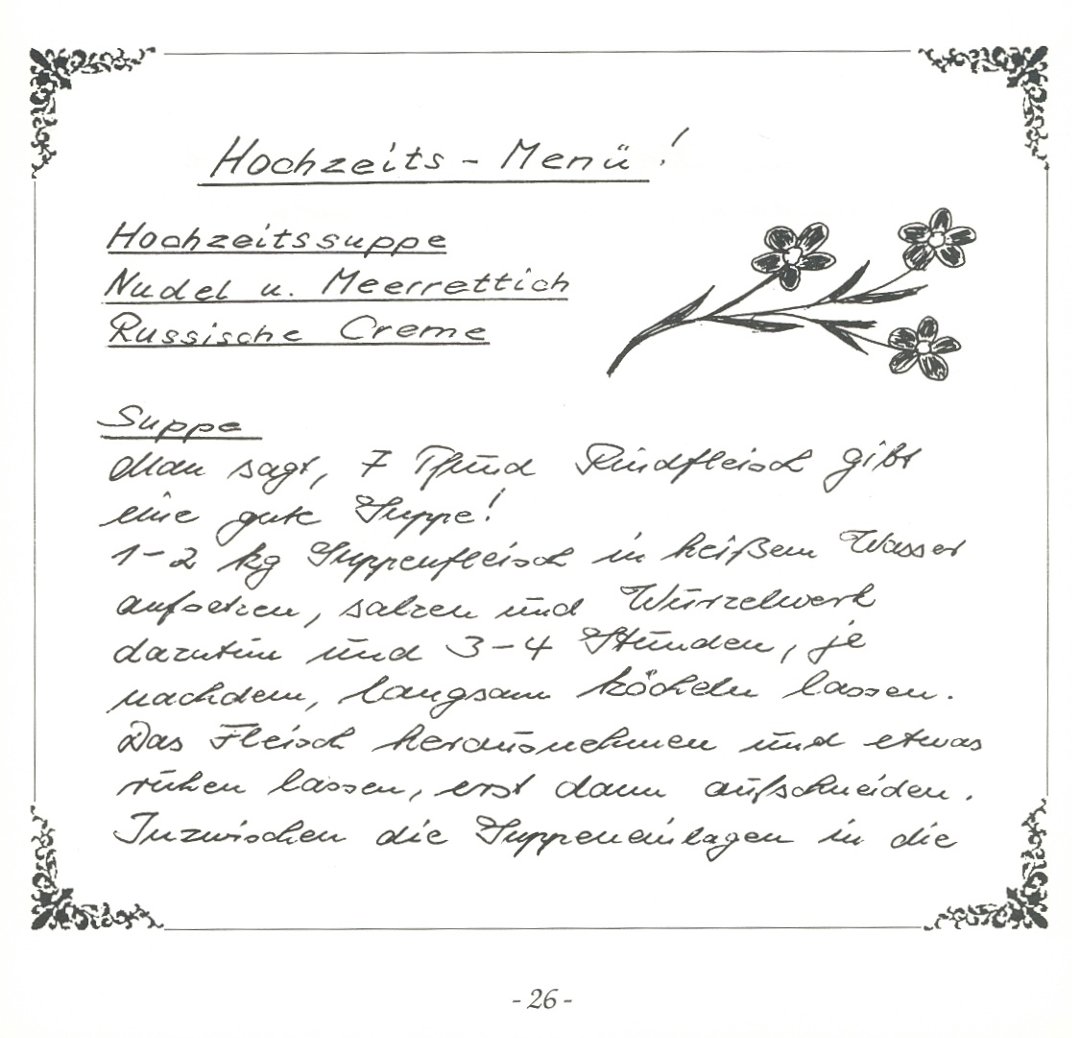 Hochzeits - Menü!
Hochzeitssuppe
Nudel u. Meerrettich
Russische Creme
Suppe
Man sagt, 7 Pfund Rindfleisch gibt
eine gute Suppe!
1-2 kg Suppenfleisch in heißem Wasser
aufsetzen, salzen und Wurzelwerk
dazutun und 3-4 Stunden, je
nachdem, langsam köcheln lassen.
Das Fleisch herausnehmen und etwas
ruhen lassen, erst dann aufschneiden.
Inzwischen die Suppeneinlagen in die
- 26 -